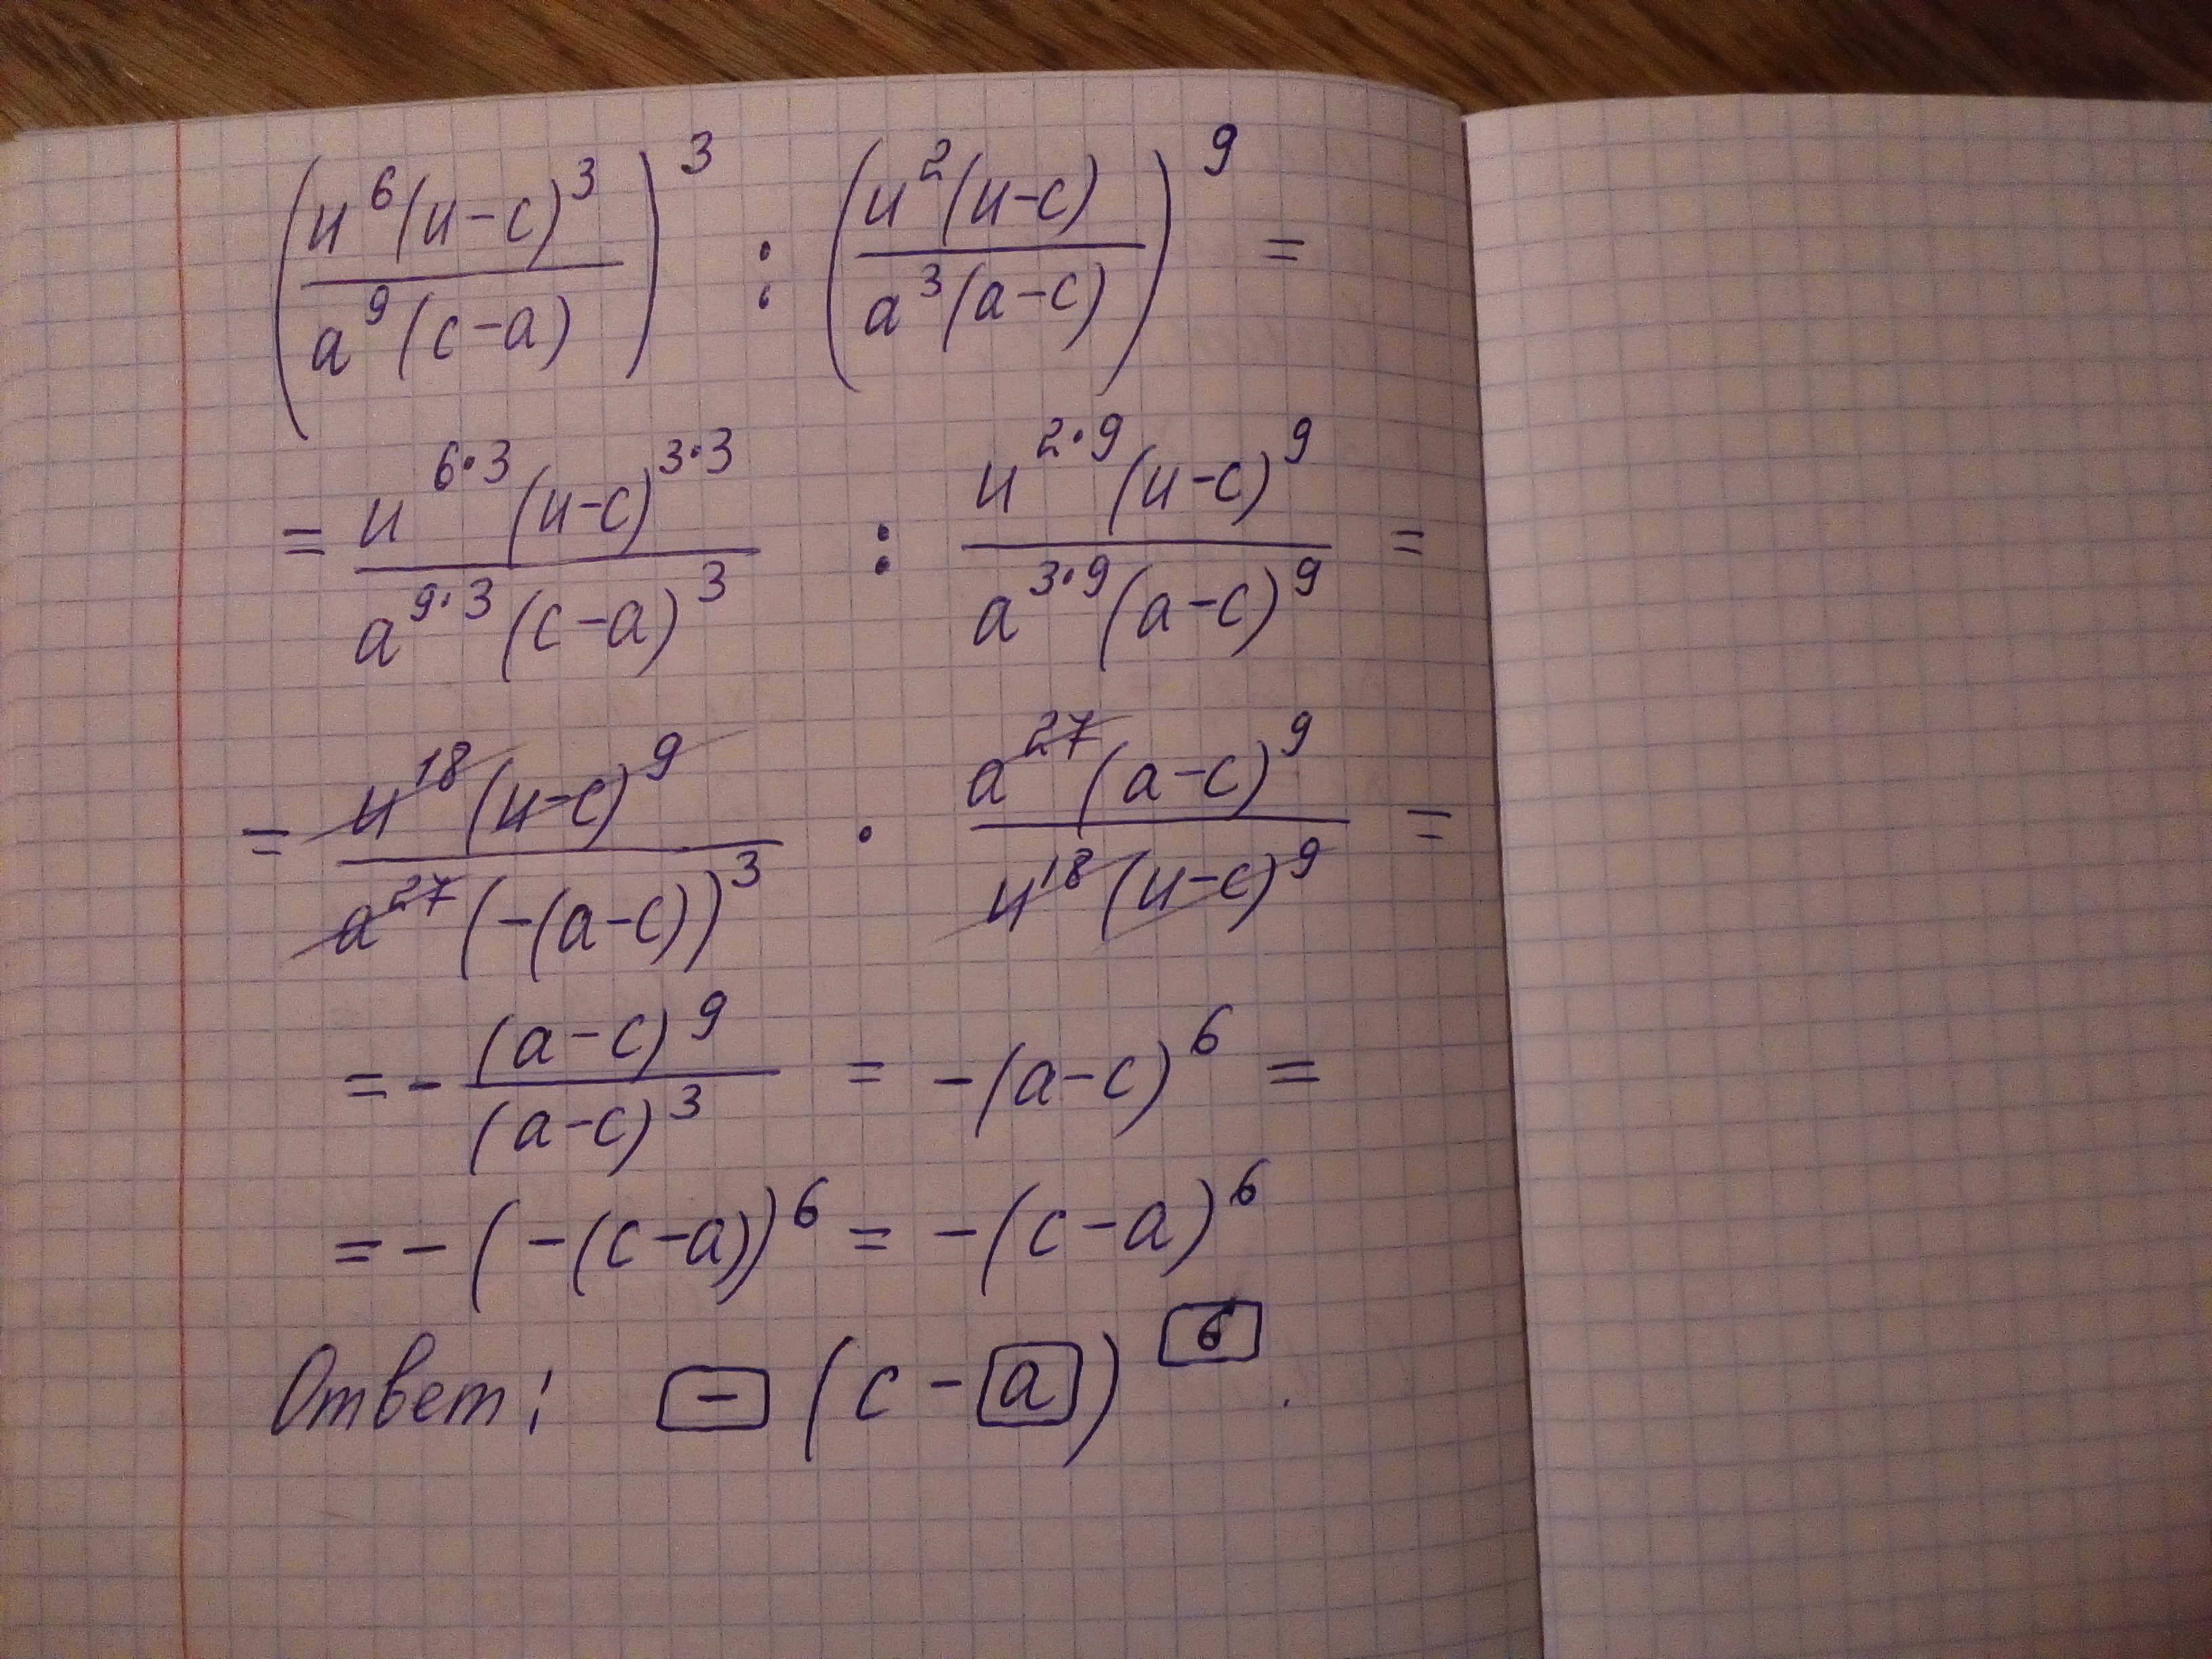 (u⁶(u-c)³ / a⁹(c-a))³ : (u²(u-c) / a³(a-c))⁹ =
= u⁶·³(u-c)³·³ / a⁹·³(c-a)³ : u²·⁹(u-c)⁹ / a³·⁹(a-c)⁹ =
= u¹⁸(u-c)⁹ / a²⁷(-(a-c))³ · a²⁷(a-c)⁹ / u¹⁸(u-c)⁹ =
= - (a-c)⁹ / (a-c)³ = -(a-c)⁶ =
= -(-(c-a))⁶ = -(c-a)⁶
Ответ: - (c - a)⁶.